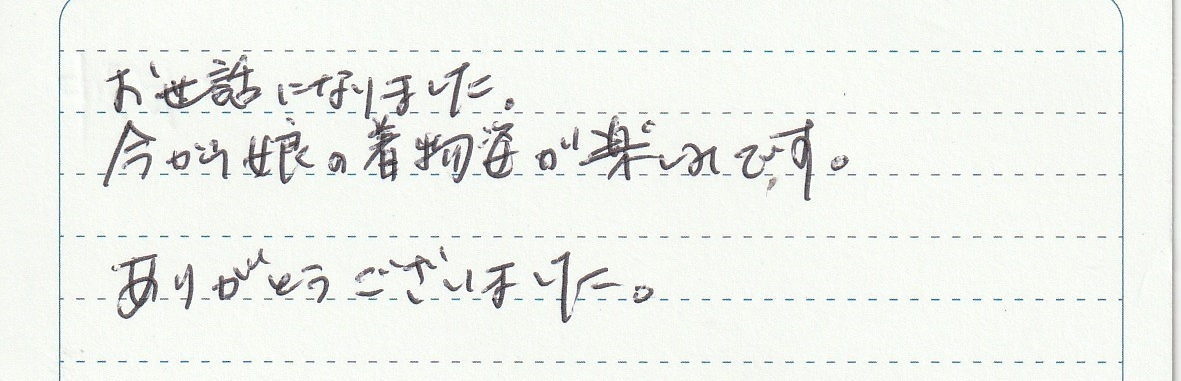 お世話になりました。
今から娘の着物姿が楽しみです。
ありがとうございました。